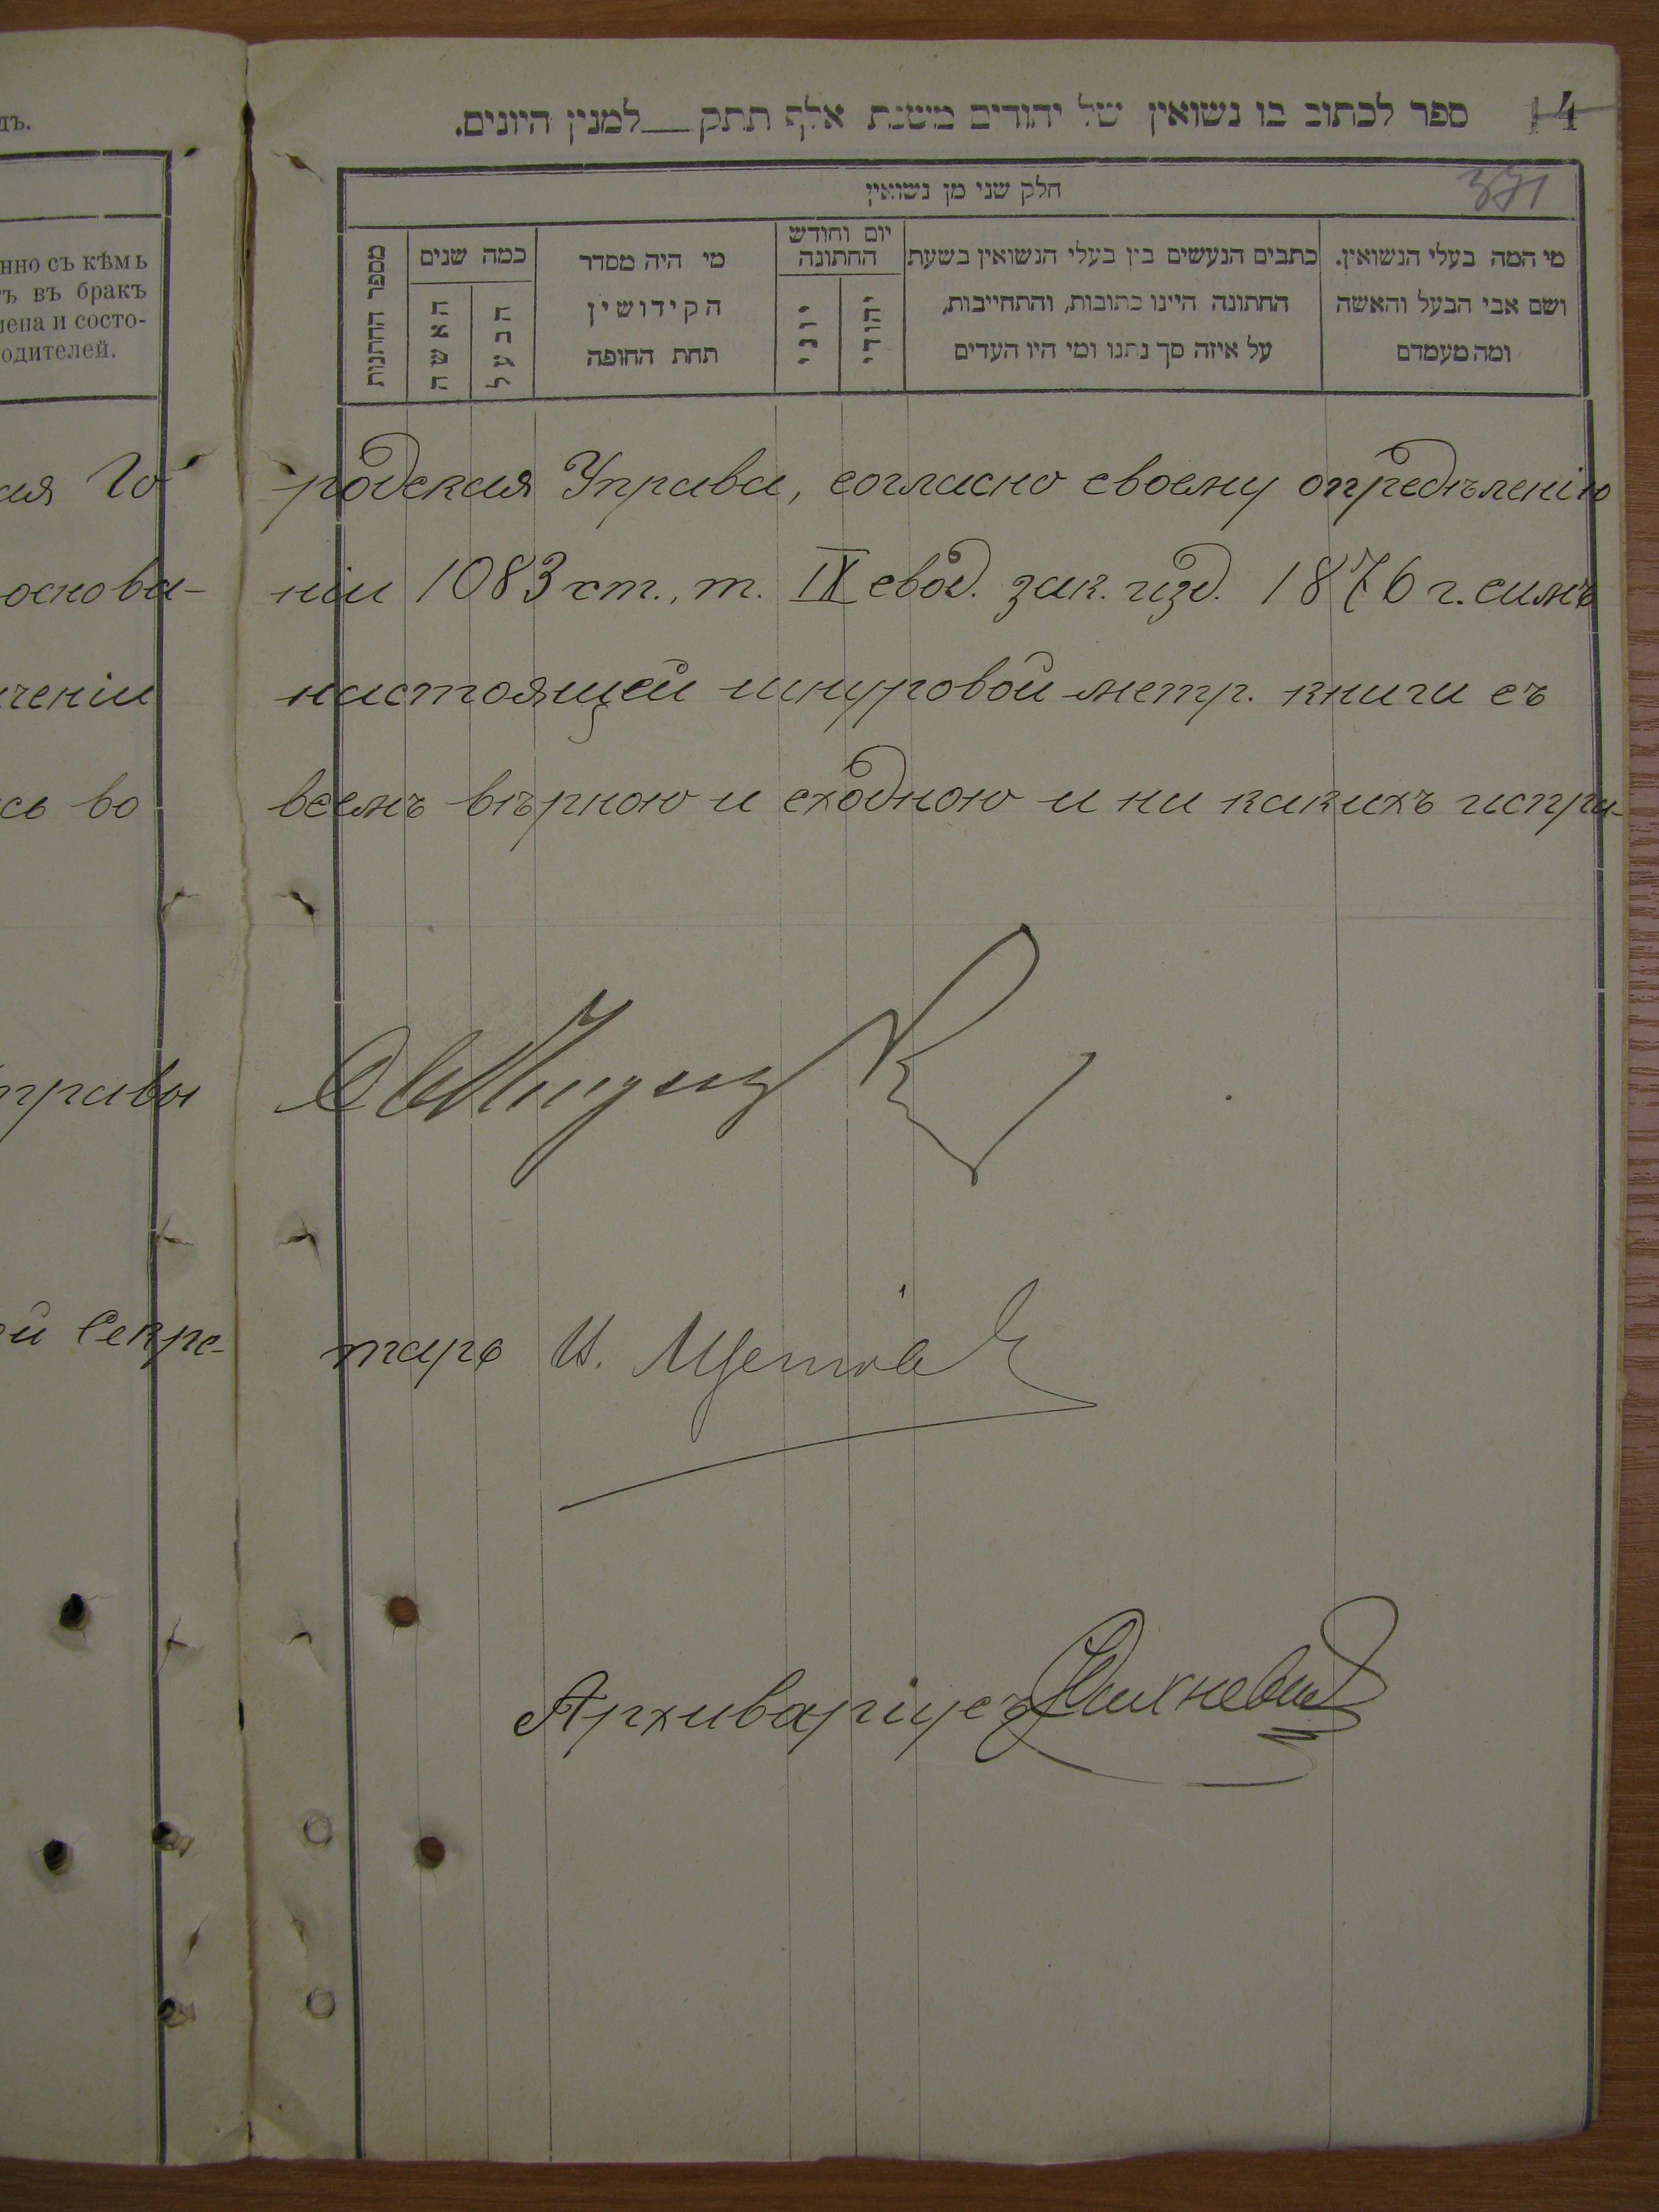 дъ.
нно съ кѣмъ
ъ въ бракъ
мена и состо-
одителей.
ספר לכתוב בו נשואין של יהודים משנת אלף תתק__למנין היונים.
14
391
חלק שני מן נשואין
מספר החתנות
כמה שנים
האשה
הבעל
מי היה מסדר
הקידושין
תחת החופה
יום וחודש
החתונה
יוני
יהודי
כתבים הנעשים בין בעלי הנשואין בשעת
החתונה היינו כתובות, והתחייבות,
על איזה סך נתנו ומי היו העדים
מי המה בעלי הנשואין.
ושם אבי הבעל והאשה
ומה מעמדם
ая Городская Управа, согласно своему опредѣленію
основаніи 1083 ст., т. IX свод. зак. изд. 1876 г. симъ
ченіи настоящей шнуровой метр. книги съ
сь во всемъ вѣрною и сходною и ни какихъ испра-
правы
ой Секретарь И.
Архиваріусъ